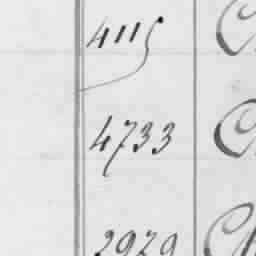 4115
4733
2929